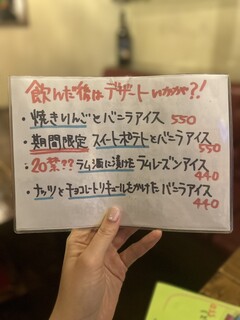 飲んだ後はデザートいかが?!
・焼きりんごとバニラアイス 550
・期間限定 スイートポテトとバニラアイス 550
・20禁?? ラム酒に漬けたラムレーズンアイス 440
・ナッツとチョコレートリキュールをかけたバニラアイス 440